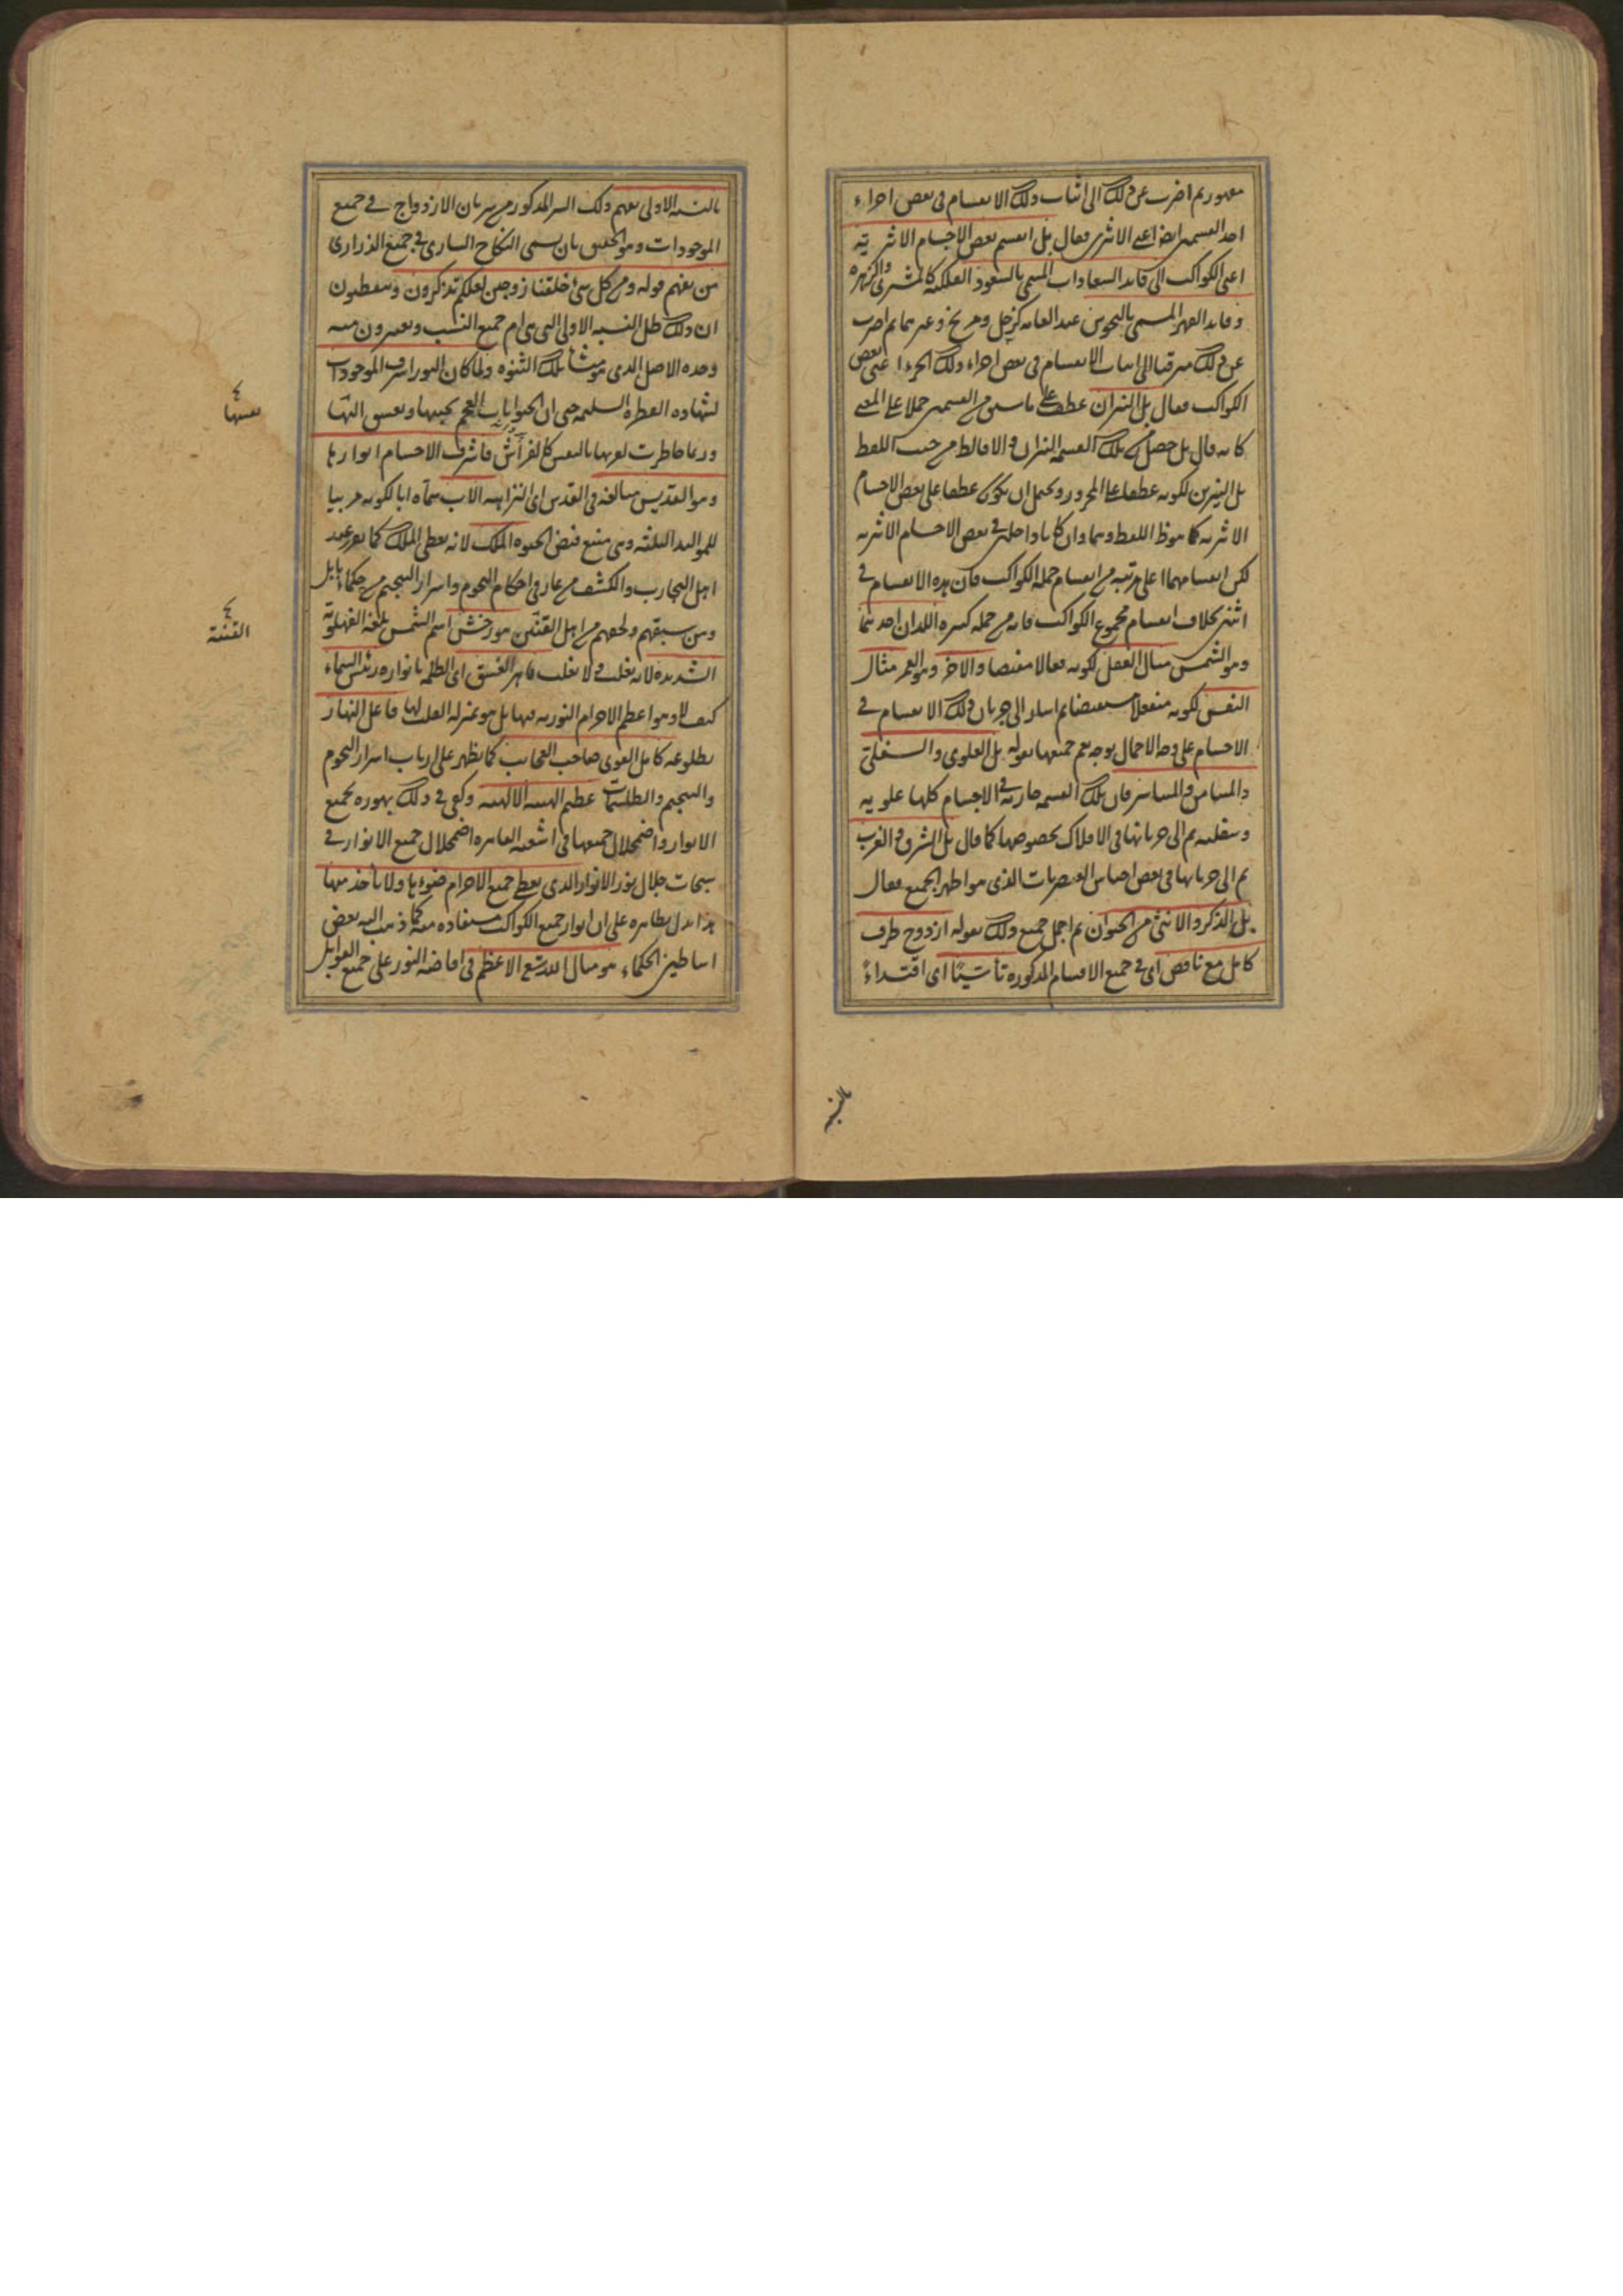 مقهور ثم اضرب عن ذلك الى اثبات ذلك الانقسام فى بعض اجزاء
احد القسمين ايضا اعنى الاثيرى فقال بل انقسم بعض الاجسام الاثيرية
اعنى الكواكب الى قائد السعادات المسمى بالسعود الفلكية كالمشترى والزهرة
وقائد القهر المسمى بالنحوس عند العامة كزحل ومريخ وغيرهما ثم اضرب
عن ذلك مترقيا الى اثبات الانقسام فى بعض اجزاء ذلك الجزء اعنى بعض
الكواكب فقال بل النيران عطف على ما سبق من القسمين حملا على المعنى
كانه قال بل حصل من تلك القسمة النيران والا فالظ من حيث اللفظ
بل النيرين لكونه عطفا على المجرور ويحتمل ان يكون عطفا على بعض الاجسام
الاثيرية كما هو ظ اللفظ وهما وان كانا داخلين فى بعض الاجسام الاثيرية
لكن انقسامهما اعلى مرتبة من انقسام جملة الكواكب فان هذه الانقسام فى
اثنين بخلاف انقسام مجموع الكواكب فانه من جملة كثيرة اللذان احدهما
وهو الشمس مثال العقل لكونه فعالا مفيضا والاخر وهو القمر مثال
النفس لكونه منفعلا مستفيضا ثم اشار الى جريان ذلك الانقسام فى
الاجسام على وجه الاجمال بوجه يعم جميعها بقوله بل العلوى والسفلى
والميامن والمياسر فان تلك القسمة جارية فى الاجسام كلها علوية
وسفلية ثم الى جريانها فى الافلاك بخصوصها كما قال بل الشرق والغرب
ثم الى جريانها فى بعض اجناس العنصريات الذى هو اظهر الجميع فقال
بل الذكر والانثى من الحيوان ثم اجمل جميع ذلك بقوله ازدوج طرف
كامل مع ناقص اى فى جميع الاقسام المذكورة تأسيًا اى اقتداءً
بالنسبة
بالنسبة الاولى يفهم ذلك السر المذكور من سريان الازدواج فى جميع
الموجودات وهو الحقيق بان يسمى النكاح السارى فى جميع الذرارى
من يفهم قوله ومن كل شى خلقنا زوجين لعلكم تذكرون وتتفطنون
ان ذلك ظل النسبة الاولى التى هى ام جميع النسب وتعبرون منه
وحدة الاصل الذى هو منشأ تلك الثنوة ولما كان النور اشرف الموجودات
لشهادة الفطرة السليمة حتى ان الحيوانات العجم تحبها وتعشق اليها
وربما خاطرت لقربها بالنفس كالفراش فاشرف الاجسام انوارها
وهو القديس مبالغة فى القدس اى النزاهة الاب سماه ابا لكونه مربيا
للمواليد الثلثة وهى منبع فيض الحيوة الملك لانه يعطى الملك كما تقرر عند
اهل التجارب والكشف من عارفى احكام النجوم واسرار التنجيم من حكماء بابل
ومن سبقهم ولحقهم من اهل القنقن هورخش اسم الشمس بلغة الفهلوية
الشديد لانه يغلب ولا يغلب قاهر الغسق اى الظلمة بانواره رئيس السماء
كيف لا وهو اعظم الاجرام النورية فيها بل هو بمنزلة القلب لها فاعل النهار
بطلوعه كامل القوى صاحب العجائب كما يظهر على ارباب اسرار النجوم
والتنجيم والطلسمات عظيم الهيئة الالهية وكفى فى ذلك بهوره بجميع
الانوار واضمحلال جميعها فى اشعته القاهرة اضمحلال جميع الانوار فى
سبحات جلال نور الانوار الذى يعطى جميع الاجرام ضوءها ولا يأخذ منها
هذا يدل بظاهره على ان انوار جميع الكواكب مستفادة منه كما ذهب اليه بعض
اساطين الحكماء هو مثال الله تع الاعظم فى افاضة النور على جميع القوابل